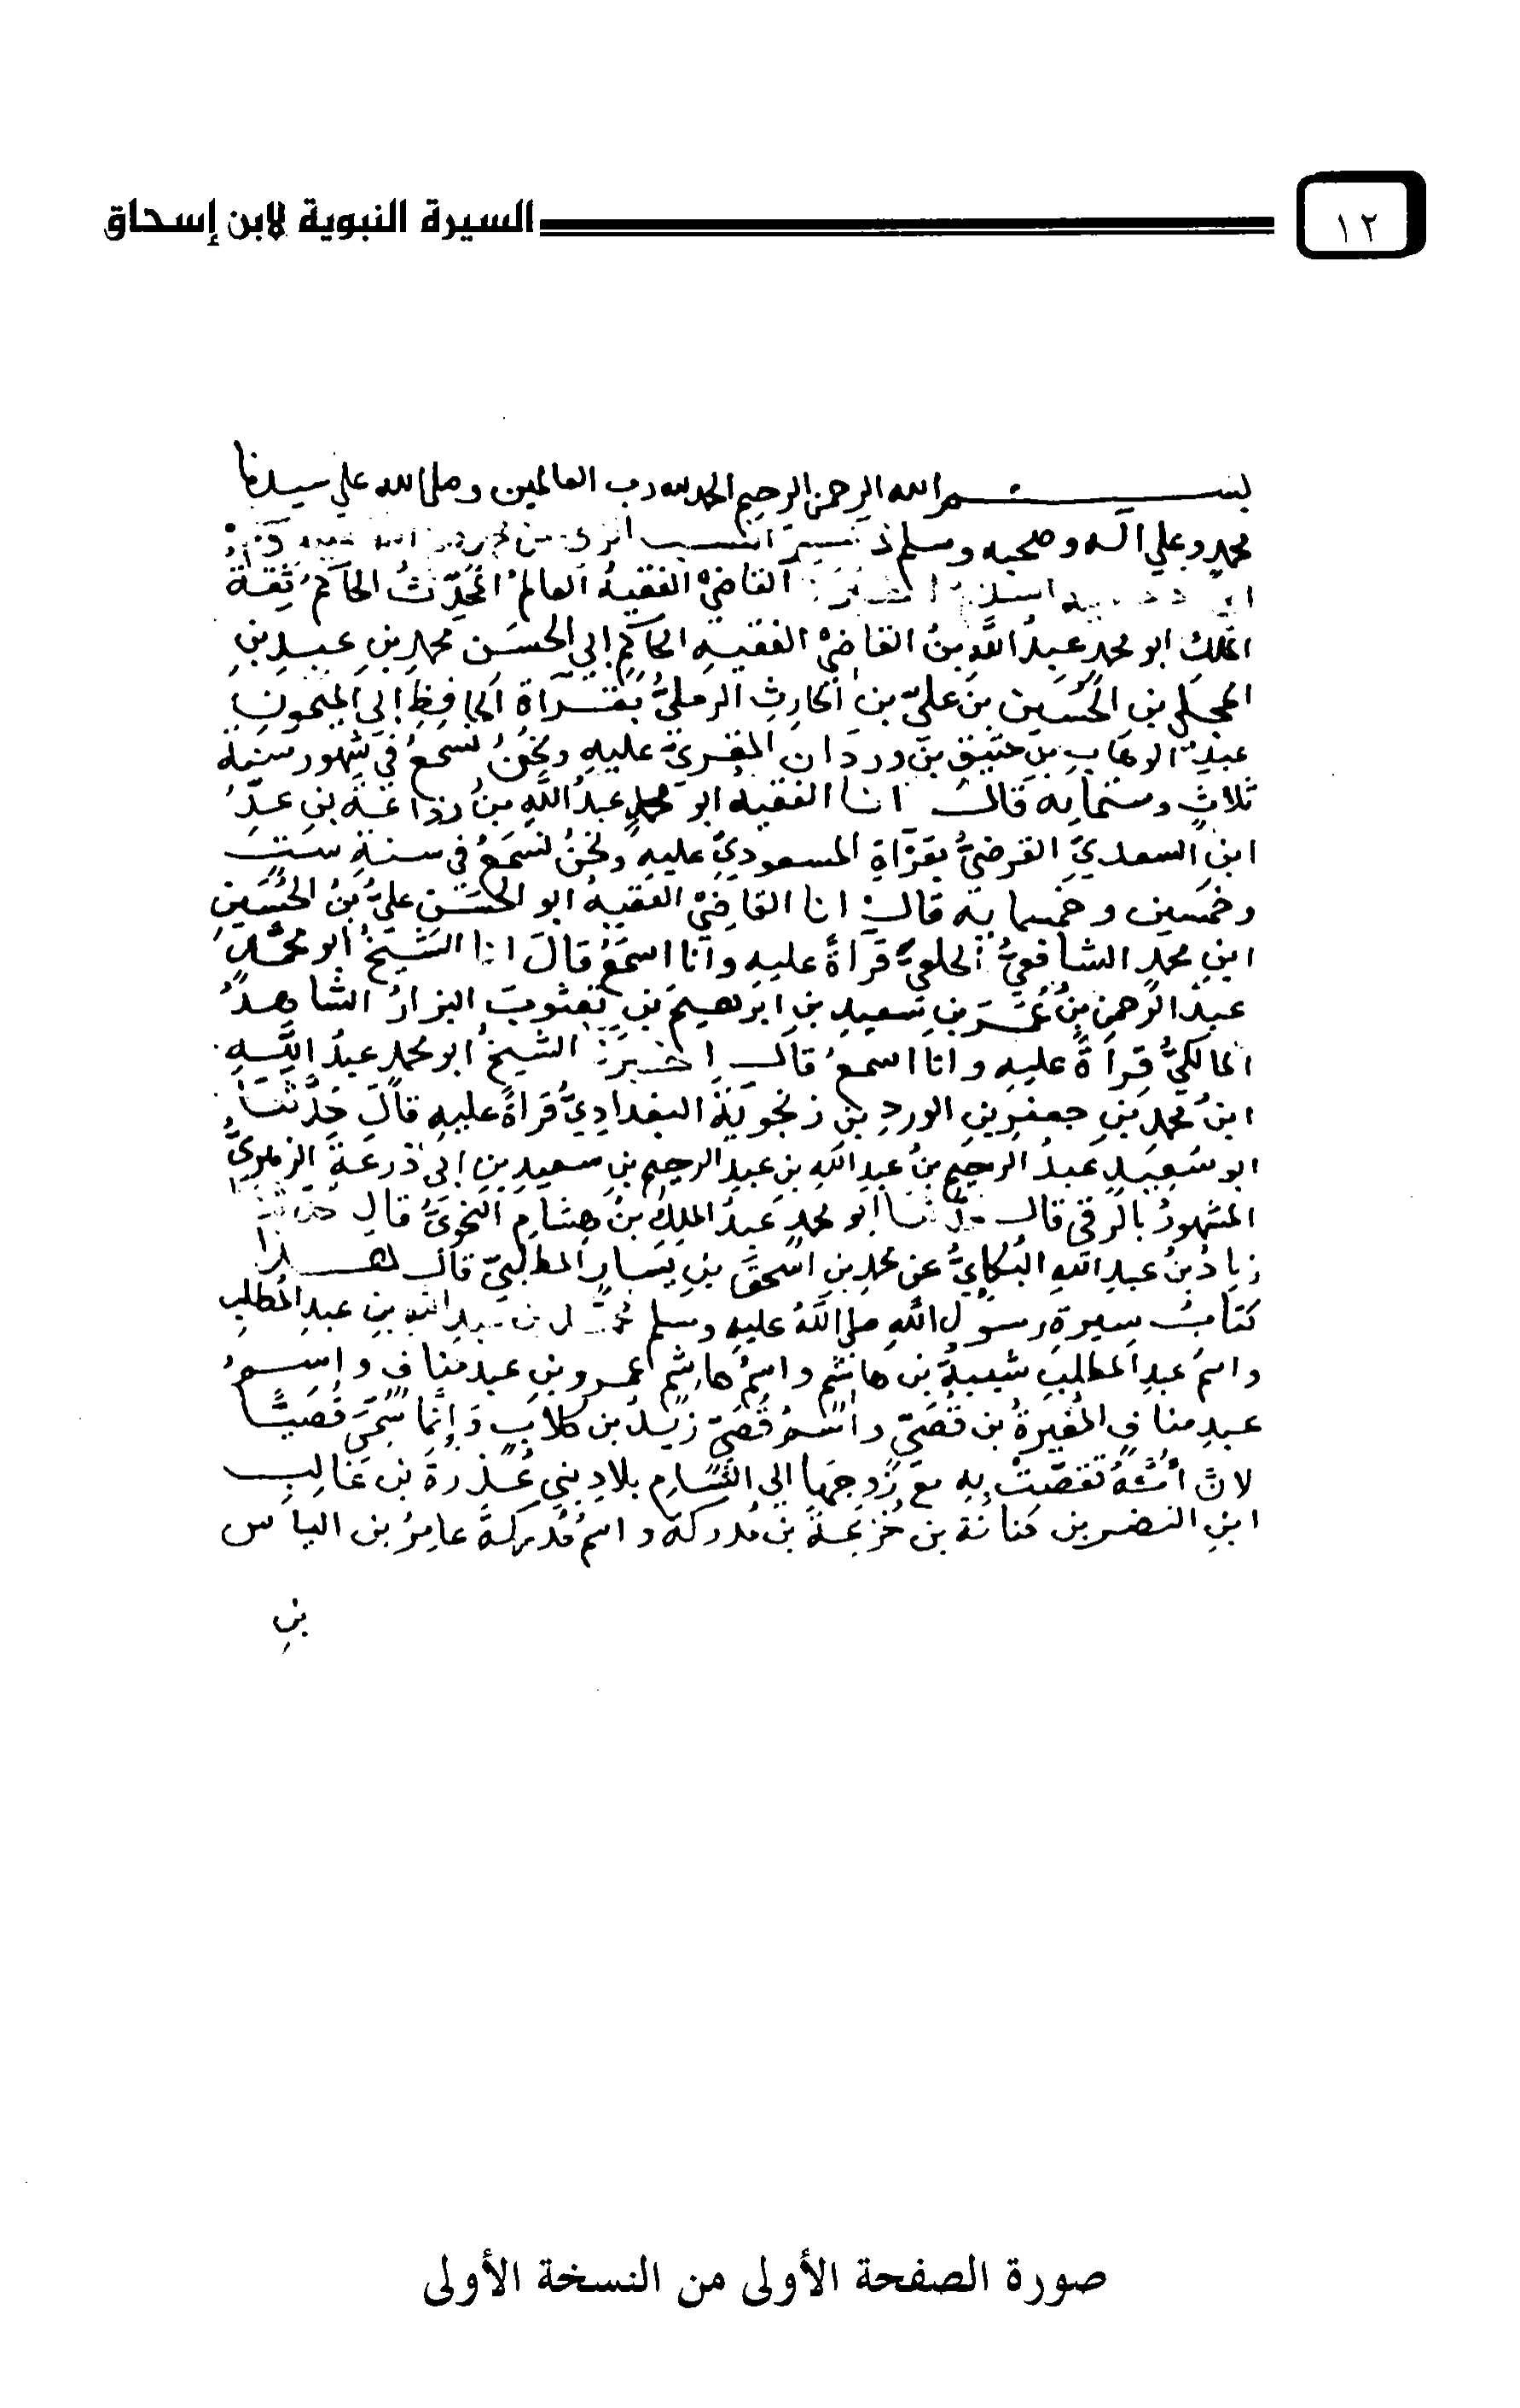 ١٢
السيرة النبوية لابن إسحاق
بسم الله الرحمن الرحيم الحمد لله رب العالمين وصلى الله على سيدنا
محمد وعلى آله وصحبه وسلم ذ
القاضي الفقيه العالم المحدث الحاكم ثقة
الملك ابو محمد عبد الله بن القاضي الفقيه الحاكم ابي الحسن محمد بن عبد بن
المجلي بن الحسين بن علي بن الحارث الرملي بقراة الحافظ ابي الميمون
عبد الوهاب بن عتيق بن وردان المقري عليه ونحن نسمع في شهور سنة
ثلاث وستمايه قال انا الفقيه ابو محمد عبد الله بن رفاعة بن غدير
ابن السعدي الفرضي بقراة المسعودي عليه ونحن نسمع في سنة ست
وخمسين وخمسمايه قال انا القاضي الفقيه ابو الحسن علي بن الحسين
ابن محمد الشافعي الخلعي قراة عليه وانا اسمع قال انا الشيخ ابو محمد
عبد الرحمن بن عمر بن سعيد بن ابرهيم بن يعقوب البزار الشاهد
المالكي قراة عليه وانا اسمع قال اخبرنا الشيخ ابو محمد عبد الله
ابن محمد بن جعفر بن الورد بن زنجوية البغدادي قراة عليه قال حدثنا
ابو سعيد عبد الرحيم بن عبد الله بن عبد الرحيم بن سعيد بن ابي ذرعة الزهري
المشهور بالرقي قال حدثنا ابو محمد عبد الملك بن هشام النحوي قال حدثنا
زياد بن عبد الله البكايي عن محمد بن اسحق بن يسار المطلبي قال هذا
كتاب سيرة رسول الله صلى الله عليه وسلم محمد بن عبد الله بن عبد المطلب
واسم عبد المطلب شيبة بن هاشم واسم هاشم عمرو بن عبد مناف واسم
عبد مناف المغيرة بن قصي واسم قصي زيد بن كلاب وإنما سمي قصيا
لان أمه تقصت به مع زوجها الي الشام بلاد بني عذرة بن غالب
ابن النضر بن كنانة بن خزيمة بن مدركة واسم مدركة عامر بن الياس
بن
صورة الصفحة الأولى من النسخة الأولى